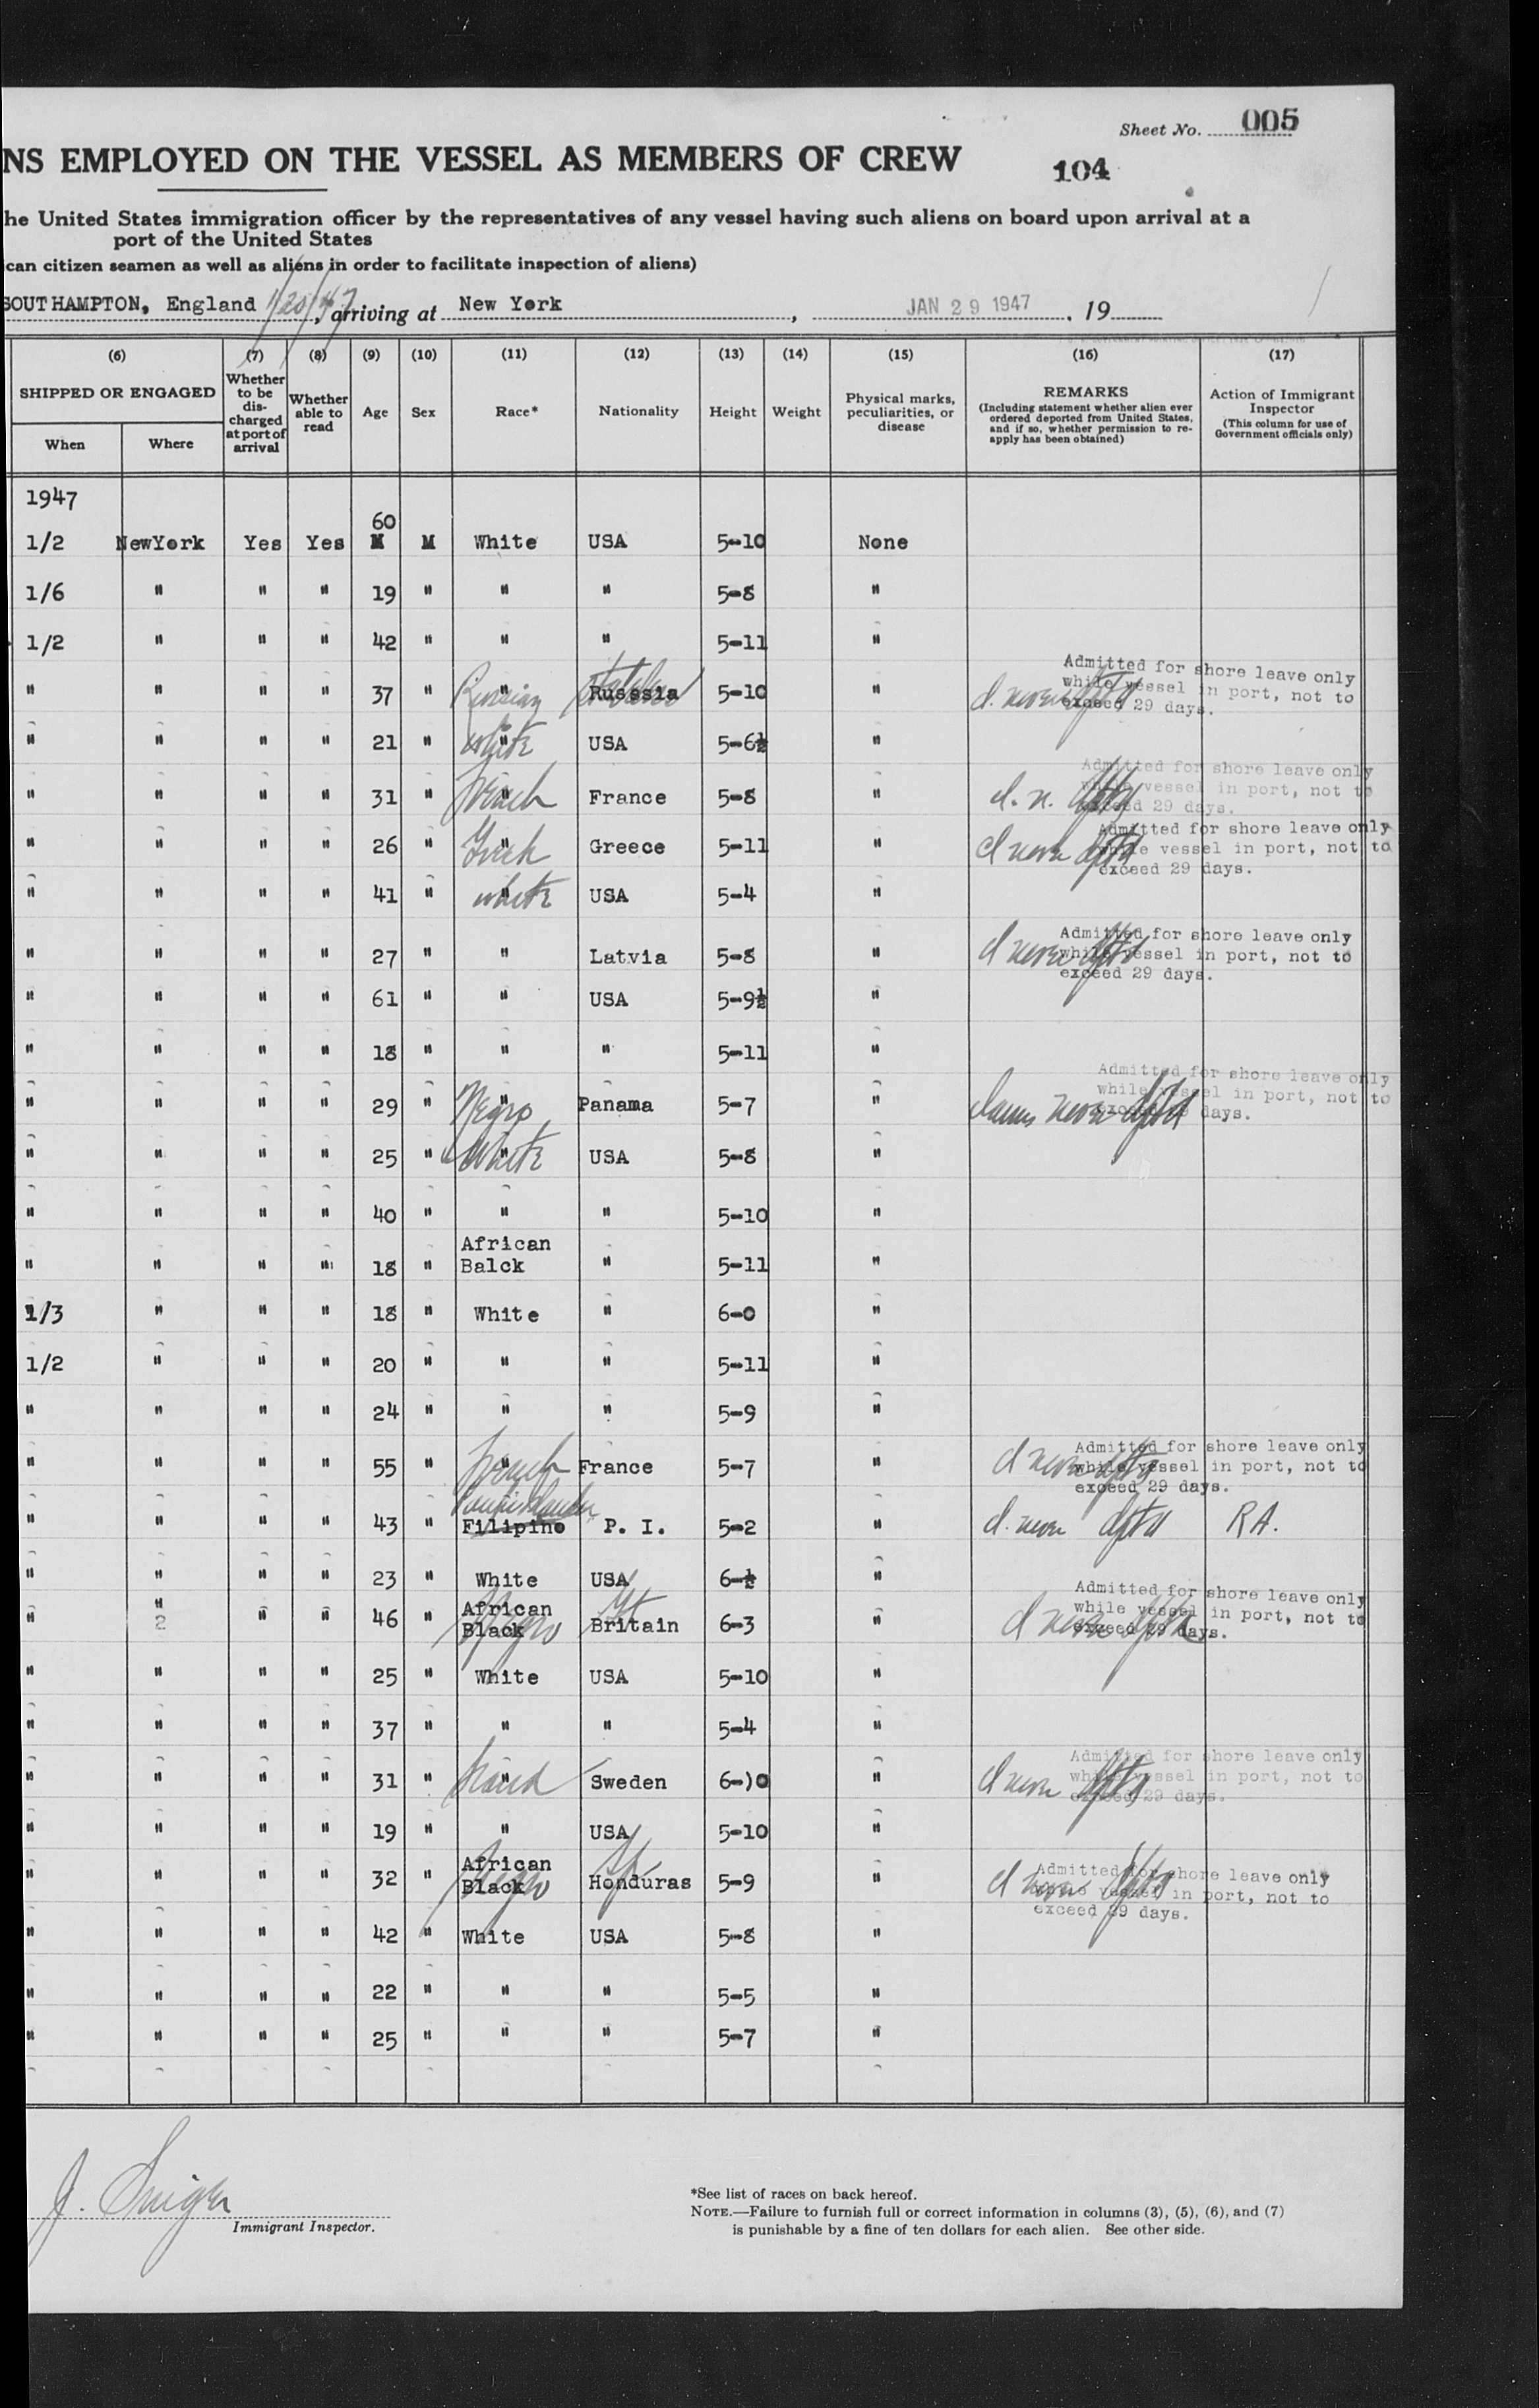 Sheet No. 005
NS EMPLOYED ON THE VESSEL AS MEMBERS OF CREW
104
he United States immigration officer by the representatives of any vessel having such aliens on board upon arrival at a
port of the United States
can citizen seamen as well as aliens in order to facilitate inspection of aliens)
SOUTHAMPTON, England 1/20/47, arriving at New York, JAN 29 1947, 19
(6) (7) (8) (9) (10) (11) (12) (13) (14) (15) (16) (17)
SHIPPED OR ENGAGED
When Where
Whether to be dis-charged at port of arrival
Whether able to read
Age Sex Race* Nationality Height Weight
Physical marks, peculiarities, or disease
REMARKS
(Including statement whether alien ever
ordered deported from United States,
and if so, whether permission to re-
apply has been obtained)
Action of Immigrant
Inspector
(This column for use of
Government officials only)
1947
60
1/2 NewYork Yes Yes M M White USA 5-10 None
1/6 " " " 19 " " " 5-8 "
1/2 " " " 42 " " " 5-11 "
" " " " 37 " " Russian Russia 5-10 " Admitted for shore leave only while vessel in port, not to exceed 29 days.
" " " " 21 " " White USA 5-6½ "
" " " " 31 " " French France 5-8 " Admitted for shore leave only while vessel in port, not to exceed 29 days.
" " " " 26 " " Greek Greece 5-11 " Cl never dptd Admitted for shore leave only while vessel in port, not to exceed 29 days.
" " " " 41 " " white USA 5-4 "
" " " " 27 " " Latvia 5-8 " Cl never dptd Admitted for shore leave only while vessel in port, not to exceed 29 days.
" " " " 61 " " USA 5-9½ "
" " " " 18 " " " 5-11 "
" " " " 29 " " Negro Panama 5-7 " Claims never dptd Admitted for shore leave only while vessel in port, not to exceed 29 days.
" " " " 25 " " White USA 5-8 "
" " " " 40 " " " 5-10 "
" " " " 18 " African Balck " 5-11 "
1/3 " " " 18 " White " 6-0 "
1/2 " " " 20 " " " 5-11 "
" " " " 24 " " " 5-9 "
" " " " 55 " " French France 5-7 " Cl never dptd Admitted for shore leave only while vessel in port, not to exceed 29 days.
" " " " 43 " Filipino P. I. 5-2 " Cl never dptd R.A.
" " " " 23 " White USA 6-½ "
" " 2 " " 46 " African Black Negro Britain 6-3 " Cl never dptd Admitted for shore leave only while vessel in port, not to exceed 29 days.
" " " " 25 " White USA 5-10 "
" " " " 37 " " " 5-4 "
" " " " 31 " " Scand Sweden 6-)0 " Cl never dptd Admitted for shore leave only while vessel in port, not to exceed 29 days.
" " " " 19 " " USA 5-10 "
" " " " 32 " African Black Negro Honduras 5-9 " Cl never dptd Admitted for shore leave only while vessel in port, not to exceed 29 days.
" " " " 42 " White USA 5-8 "
" " " " 22 " " " 5-5 "
" " " " 25 " " " 5-7 "
Immigrant Inspector.
*See list of races on back hereof.
NOTE.—Failure to furnish full or correct information in columns (3), (5), (6), and (7)
is punishable by a fine of ten dollars for each alien. See other side.